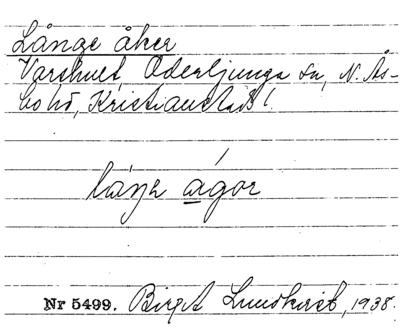 Långe åker
Varshult, Oderljunga sn, N. Ås-
bo hd, Kristianstads l.
láŋa ágor
Nr 5499. Birgit Lundkvist, 1938.